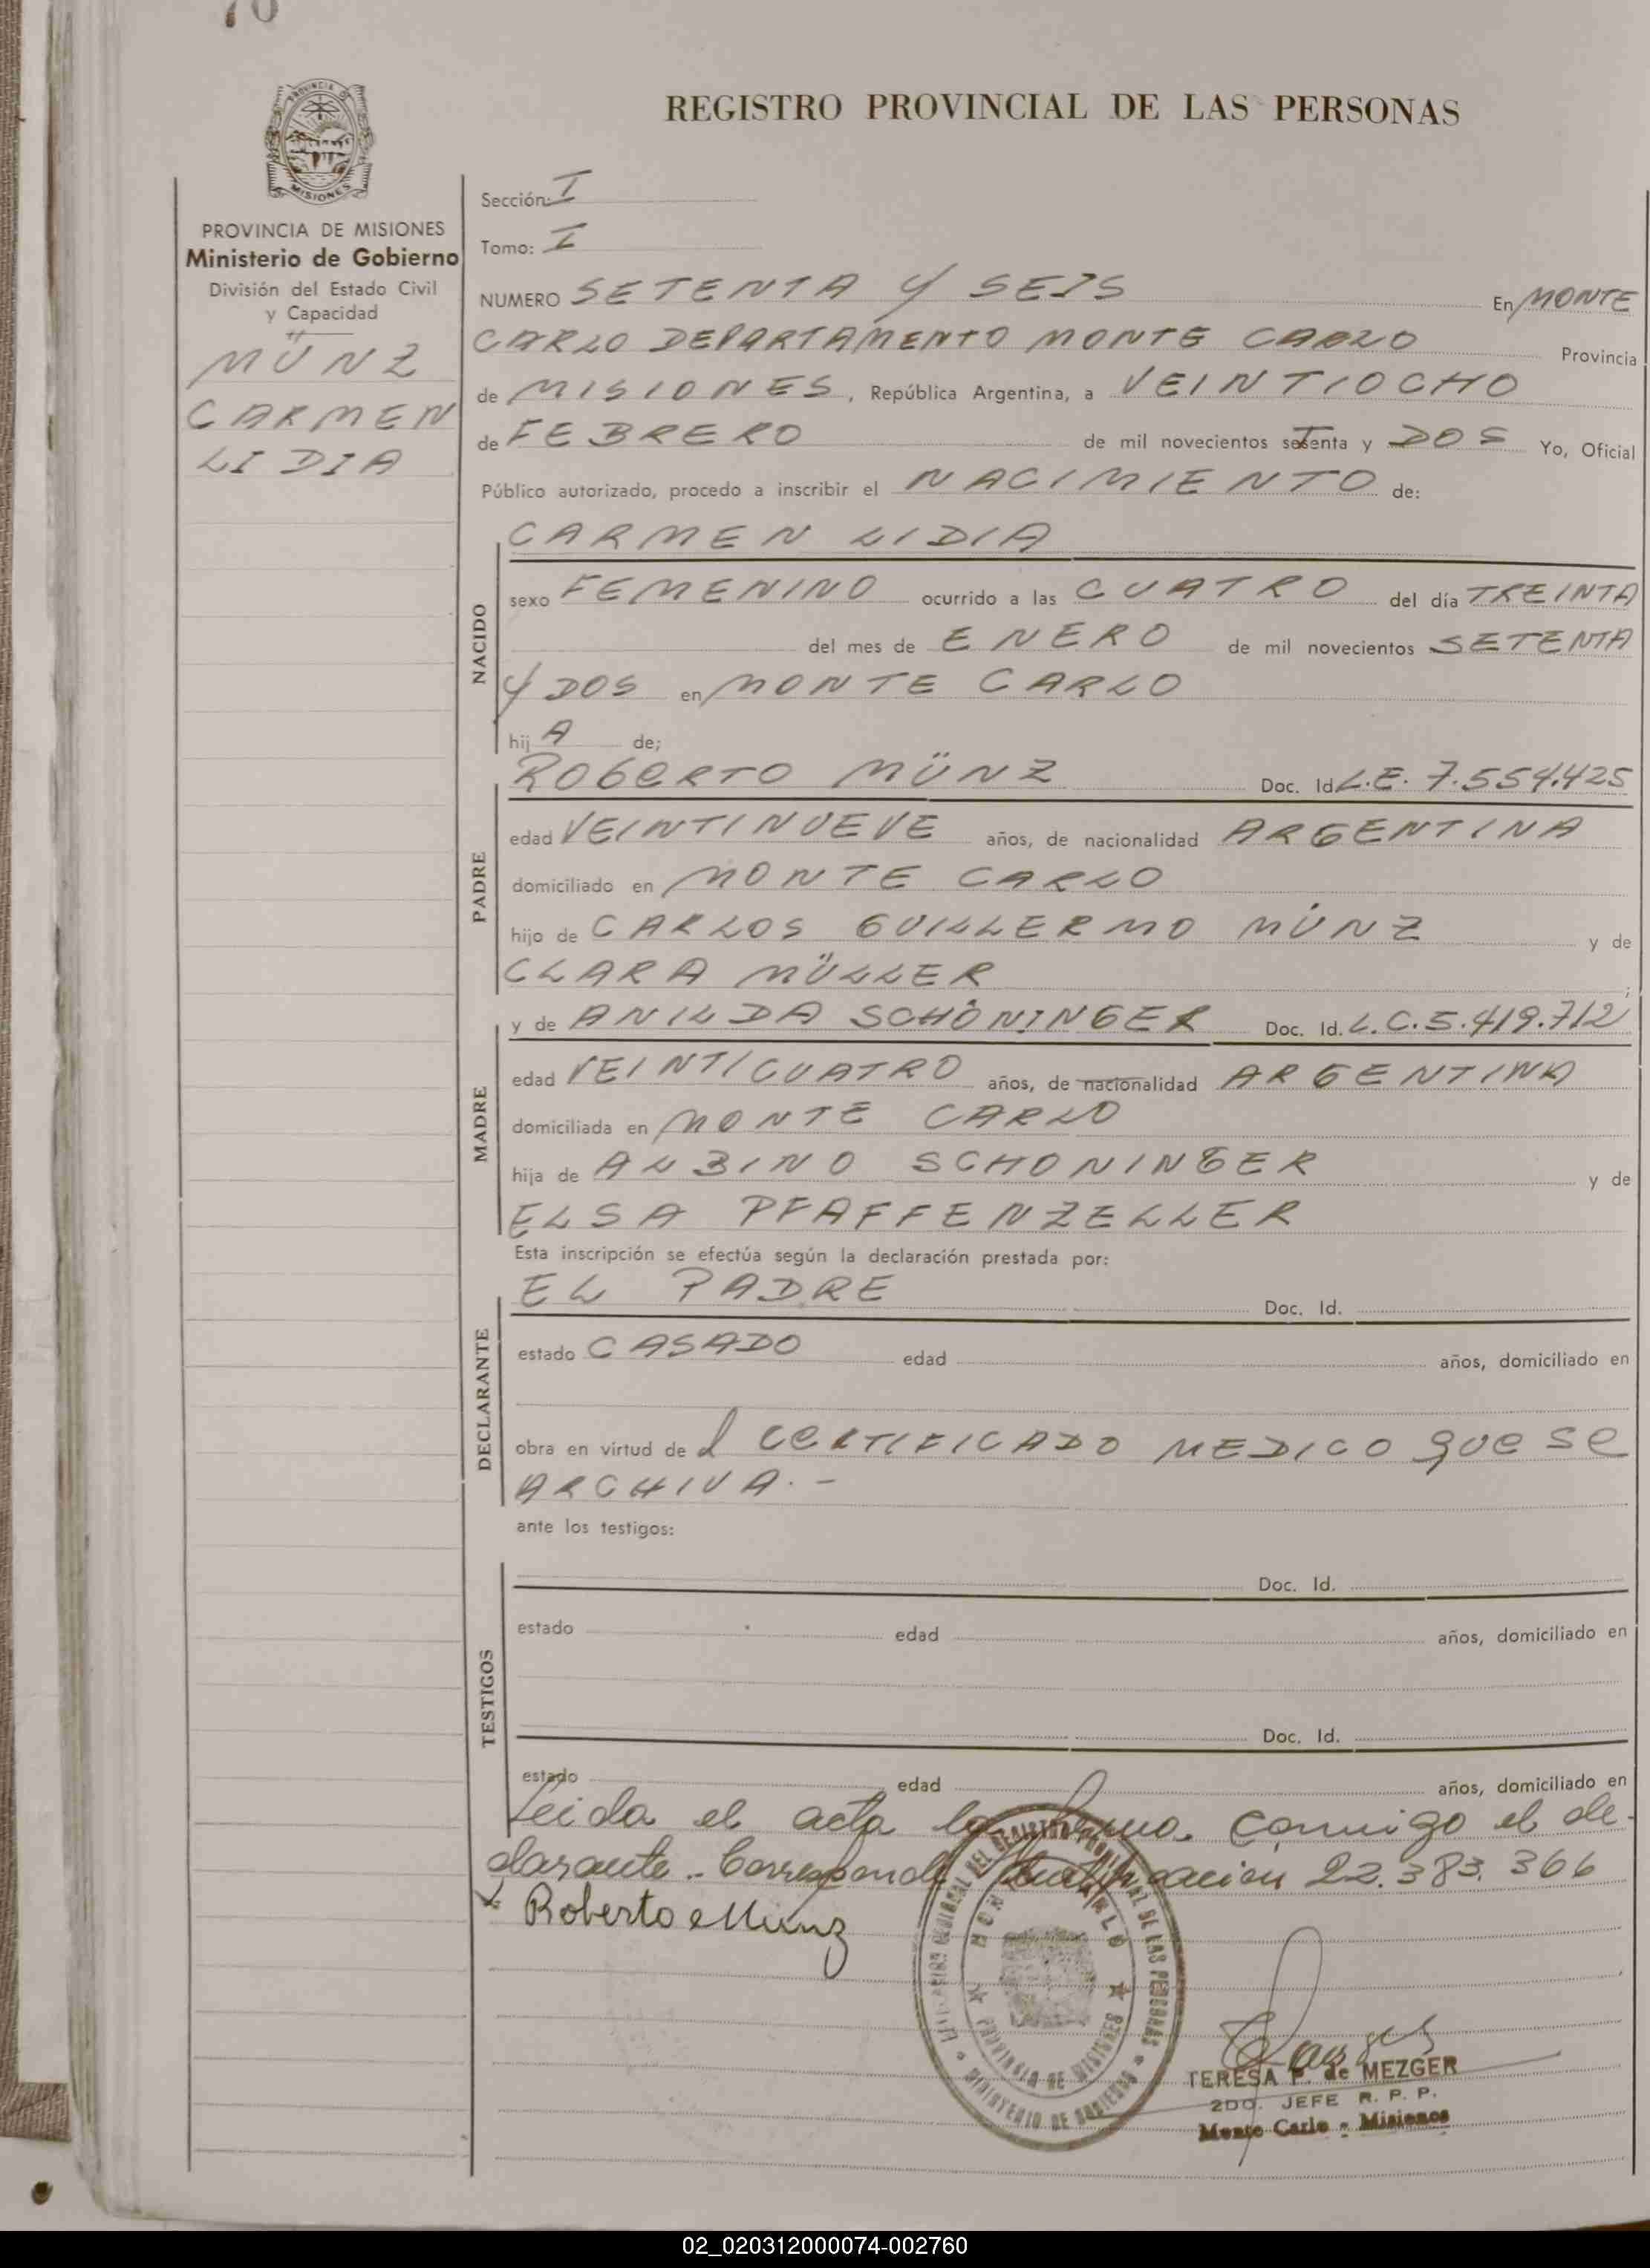 REGISTRO PROVINCIAL DE LAS PERSONAS
PROVINCIA DE MISIONES
Ministerio de Gobierno
División del Estado Civil
y Capacidad
MÜNZ
CARMEN
LIDIA
Sección: I
Tomo: I
NUMERO SETENTA Y SEIS En MONTE
CARLO DEPARTAMENTO MONTE CARLO Provincia
de MISIONES, República Argentina, a VEINTIOCHO
de FEBRERO de mil novecientos setenta y DOS Yo, Oficial
Público autorizado, procedo a inscribir el NACIMIENTO de:
NACIDO
CARMEN LIDIA
sexo FEMENINO ocurrido a las CUATRO del día TREINTA
del mes de ENERO de mil novecientos SETENTA
Y DOS en MONTE CARLO
hij A de;
PADRE
ROBERTO MÜNZ Doc. Id. L.E. 7.554.425
edad VEINTINUEVE años, de nacionalidad ARGENTINA
domiciliado en MONTE CARLO
hijo de CARLOS GUILLERMO MÜNZ y de
CLARA MÜLLER ;
MADRE
y de ANILDA SCHÖNINGER Doc. Id. L.C. 5.419.712
edad VEINTICUATRO años, de nacionalidad ARGENTINA
domiciliada en MONTE CARLO
hija de ALBINO SCHONINGER y de
ELSA PFAFFENZELLER
Esta inscripción se efectúa según la declaración prestada por:
DECLARANTE
EL PADRE Doc. Id.
estado CASADO edad años, domiciliado en
obra en virtud de l CERTIFICADO MEDICO QUE SE
ARCHIVA.-
ante los testigos:
TESTIGOS
Doc. Id.
estado edad años, domiciliado en
Doc. Id.
estado edad años, domiciliado en
Leida el acta la firma conmigo el de-
clarante. Corresponde 22.383.366
x Roberto Münz
REGISTRO PROVINCIAL DE LAS PERSONAS
MONTE CARLO
PROVINCIA DE MISIONES
MINISTERIO DE GOBIERNO
TERESA F. de MEZGER
2DO. JEFE R. P. P.
Monte Carlo - Misiones
02_020312000074-002760